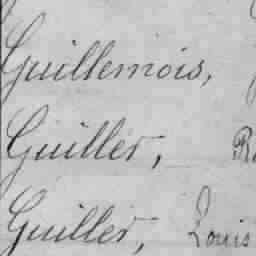 Guillemois,
Guiller, R
Guiller, Louis